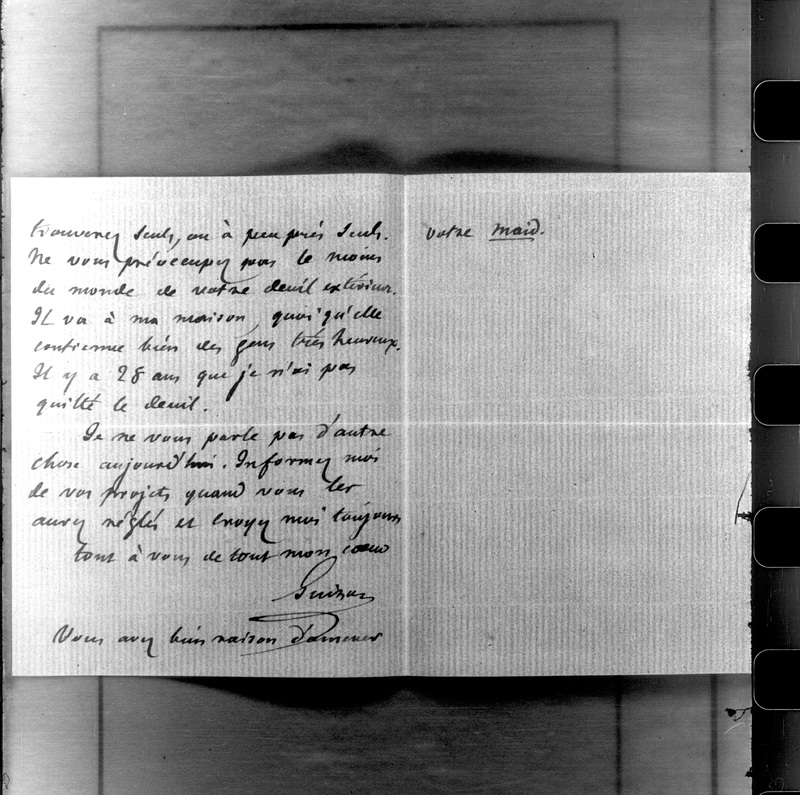 trouverez seuls, ou à peu près seuls.
Ne vous préoccupez pas le moins
du monde de votre deuil extérieur.
Il va à ma maison, quoiqu'elle
contienne bien des gens très heureux.
Il y a 28 ans que je n'ai pas
quitté le deuil.
Je ne vous parle pas d'autre
chose aujourd'hui. Informez moi
de vos projets quand vous les
aurez réglés et croyez moi toujours
tout à vous de tout mon cœur
Guizot
Vous avez bien raison d'amener
votre maid.